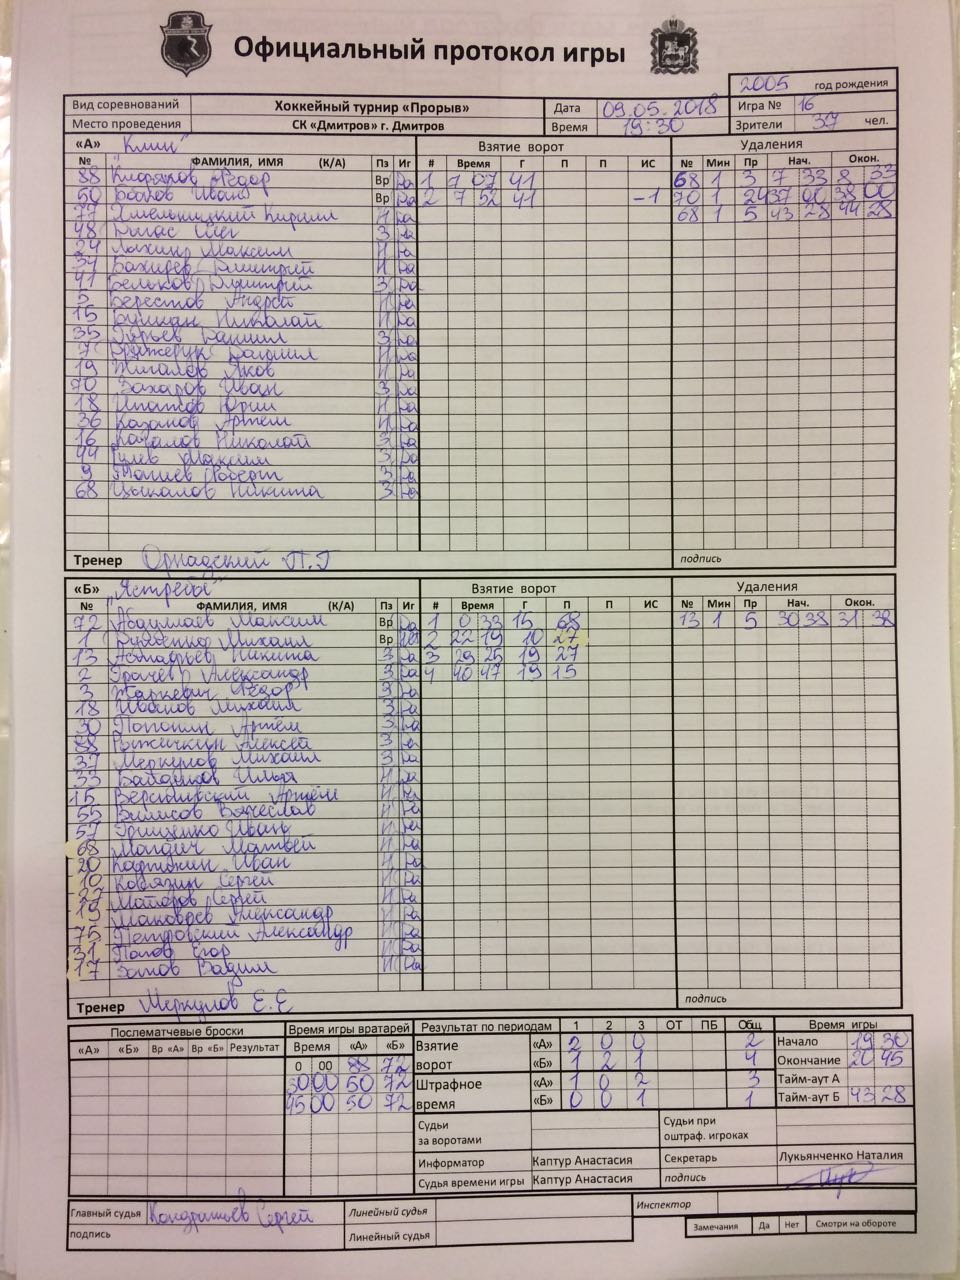 Официальный протокол игры
2005 год рождения
Вид соревнований Хоккейный турнир «Прорыв» Дата 09.05.2018 Игра № 16
Место проведения СК «Дмитров» г. Дмитров Время 19:30 Зрители 37 чел.
«А» "Клин" Взятие ворот Удаления
№ ФАМИЛИЯ, ИМЯ (К/А) Пз Иг # Время Г П П ИС № Мин Пр Нач. Окон.
88 Федор Вр Да 1 7 07 41 68 1 3 7 33 8 33
50 Иван Вр Да 2 7 52 41 -1 70 1 24 37 00 38 00
77 Хмельницкий Кирилл Н Да 68 1 5 43 28 44 28
48 Олег З Да
24 Максим Н Да
Дмитрий Н Да
41 Бельков Дмитрий З Да
5 Берестов Андрей Н Да
15 Николай Н Да
35 Гурьев Даниил З Да
7 Даниил Н Да
19 Жигалов Яков Н Да
70 Захаров Иван З Да
18 Ипатов Юрий Н Да
36 Казаков Артём Н Да
16 Николай З Да
44 Максим З Да
9 Роберт З Да
68 Цыкалов Никита З Да
Тренер П.Г подпись
«Б» "Ястребы" Взятие ворот Удаления
№ ФАМИЛИЯ, ИМЯ (К/А) Пз Иг # Время Г П П ИС № Мин Пр Нач. Окон.
72 Абдулаев Максим Вр Да 1 0 33 15 68 13 1 5 30 38 31 38
1 Михаил Вр Нет 2 22 19 10 27
13 Никита З Да 3 29 25 19 27
2 Грачев Александр З Да 4 40 47 19 15
3 Жаркевич Федор З Да
18 Иванов Михаил З Да
30 Попонин Артём З Да
88 Рыжичкин Алексей З Да
37 Меркулов Михаил З Да
33 Байдуков Илья Н Да
15 Артём Н Да
55 Вячеслав Н Да
57 Грищенко Иван Н Да
68 Матвей Н Да
20 Иван Н Да
10 Ковязин Сергей Н Да
27 Майоров Сергей Н Да
19 Маковеев Александр Н Да
75 Петровский Александр Н Да
31 Попов Егор Н Да
17 Зотов Вадим Н Да
Тренер Меркулов Е.Е подпись
Послематчевые броски Время игры вратарей Результат по периодам 1 2 3 ОТ ПБ Общ Время игры
«А» «Б» Вр «А» Вр «Б» Результат Время «А» «Б» Взятие ворот «А» 2 0 0 2 Начало 19 30
0 00 88 72 «Б» 1 2 1 4 Окончание 20 45
30 00 50 72 Штрафное время «А» 1 0 2 3 Тайм-аут А
45 00 50 72 «Б» 0 0 1 1 Тайм-аут Б 43 28
Судьи за воротами Судьи при оштраф. игроках
Информатор Каптур Анастасия Секретарь Лукьянченко Наталия
Судья времени игры Каптур Анастасия подпись
Главный судья Кондратьев Сергей Линейный судья Инспектор
подпись Линейный судья Замечания Да Нет Смотри на обороте